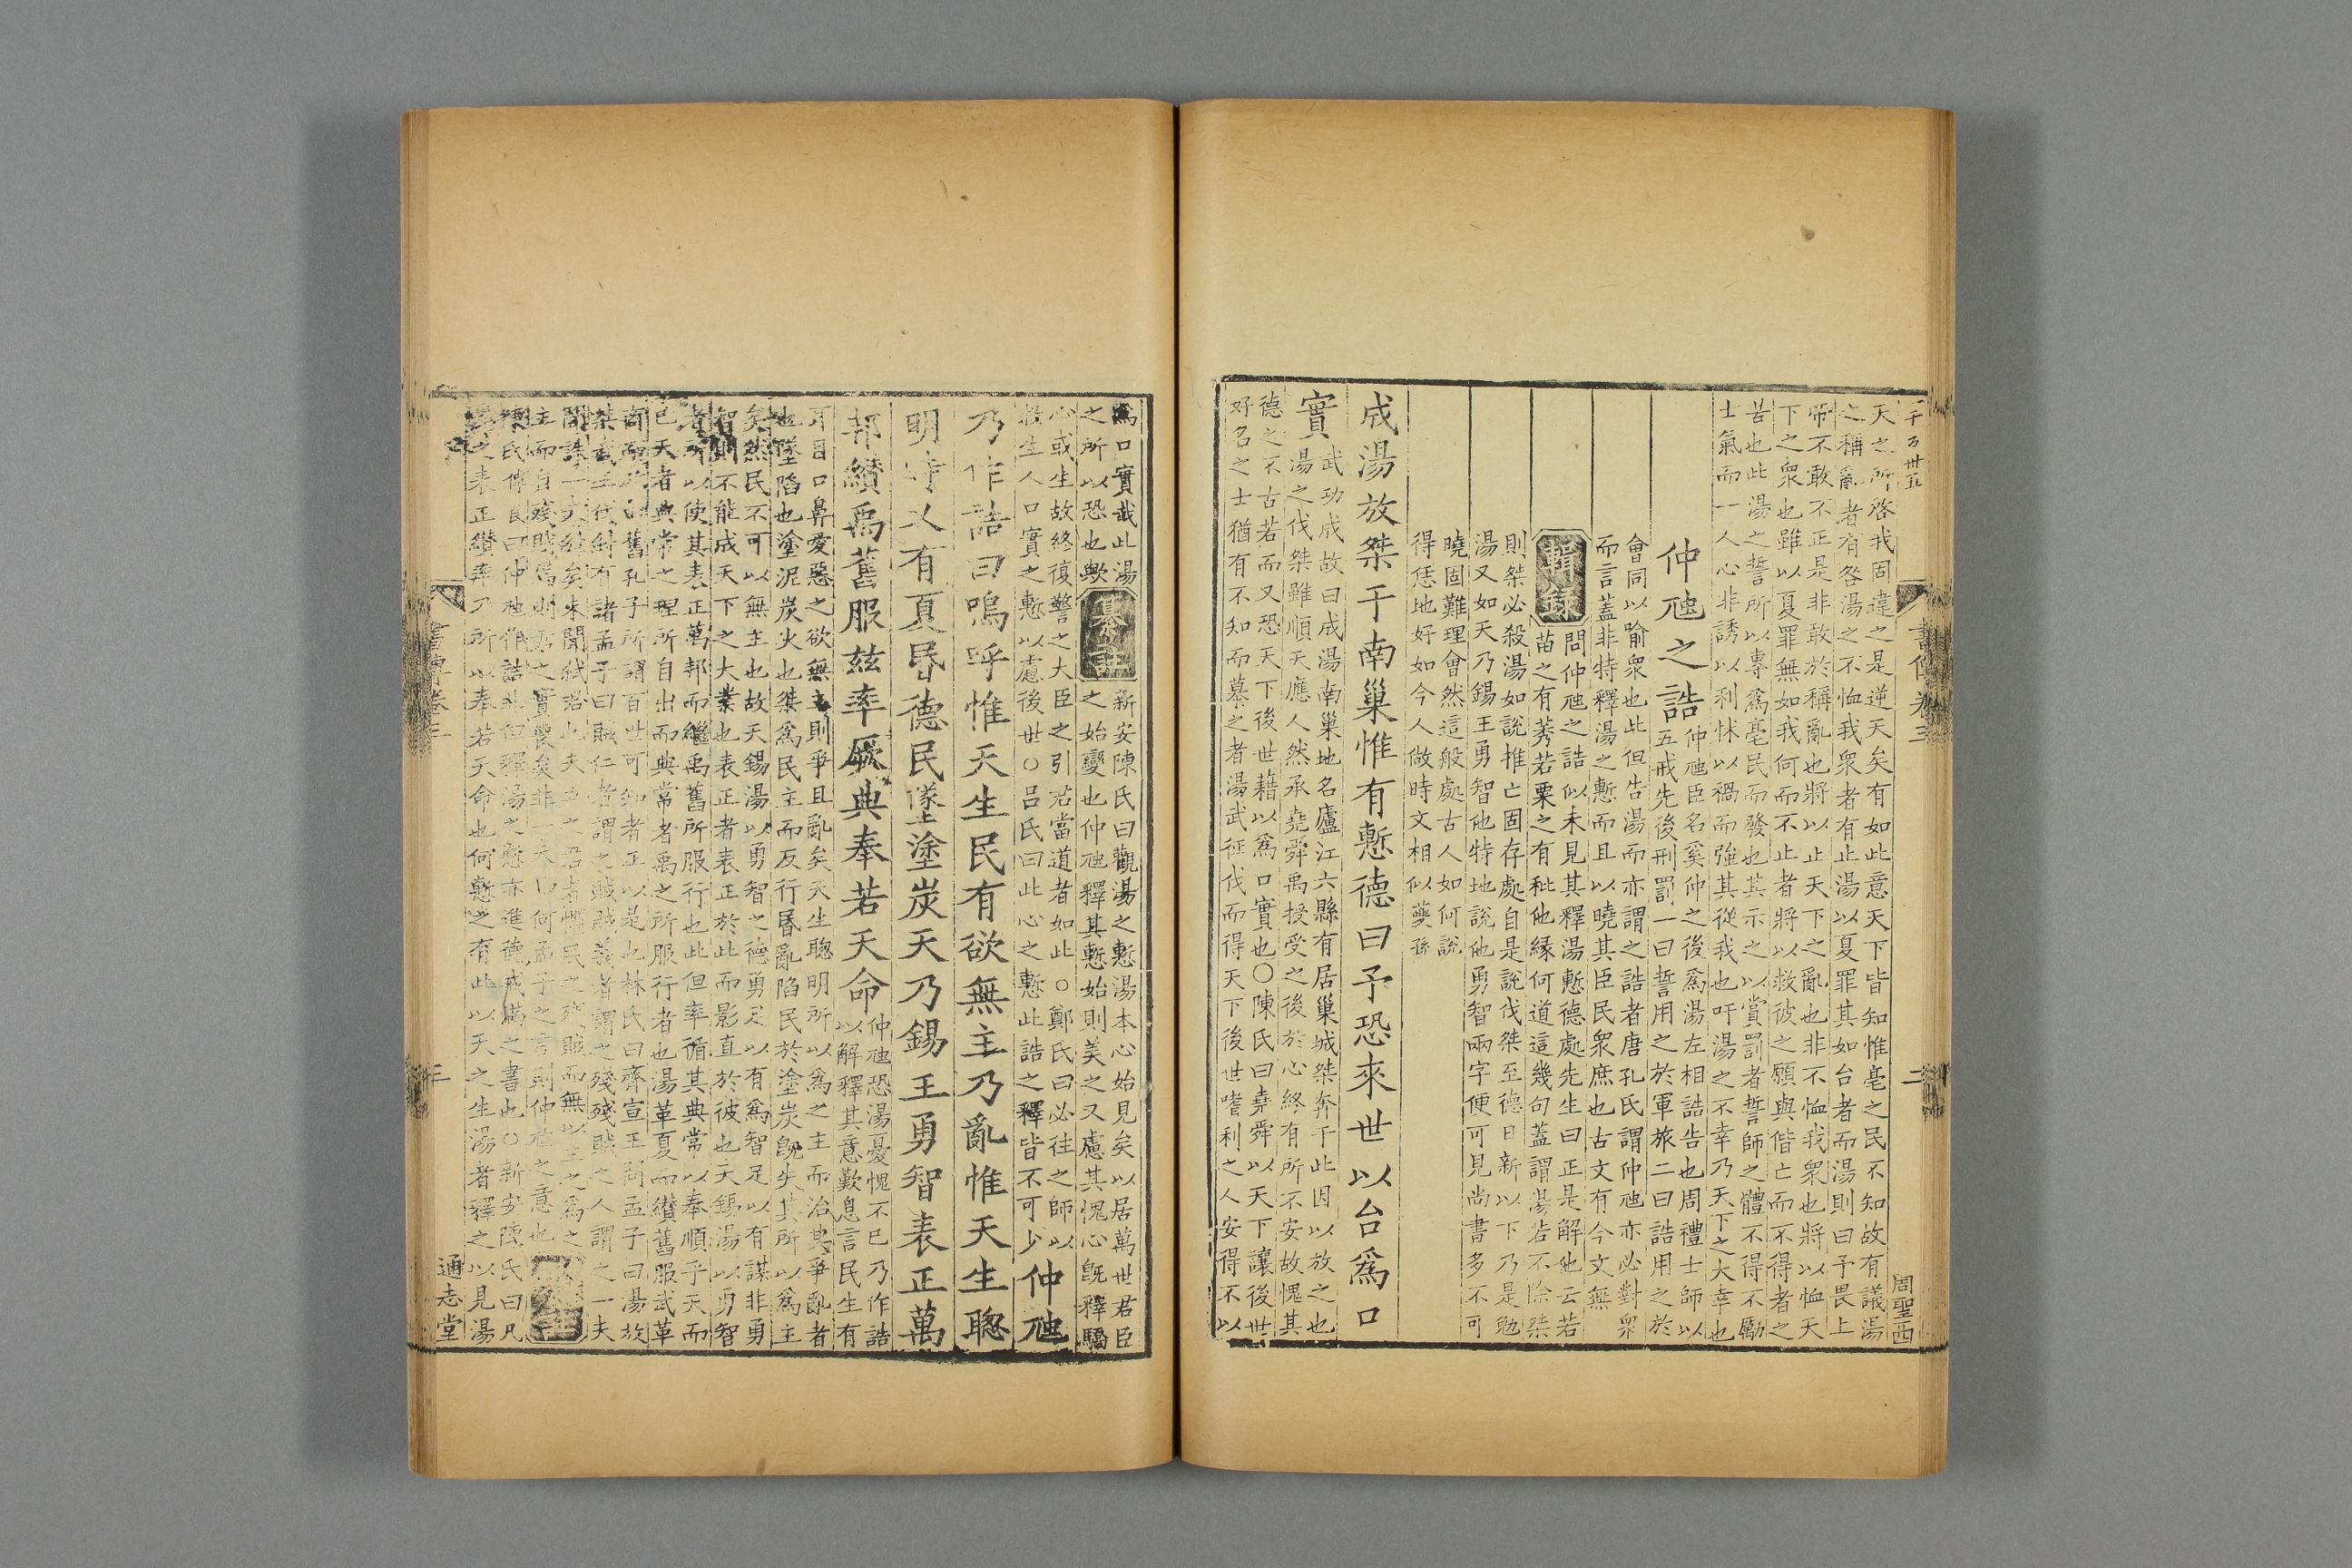 天之所咎我固違之是逆天矣有如此意天下皆知惟亳之民不知故有議湯
之稱亂者有咎湯之不恤我衆者有止湯以夏罪其如台者而湯則曰予畏上
帝不敢不正是非敢於稱亂也將以止天下之亂也非不恤我衆也將以恤天
下之衆也雖以夏罪無如我何而不止者將以救彼之願與偕亡而不得者之
苦也此湯之誓所以專爲亳民而發也其示之以賞罰者誓師之體不得不勵
士氣而一人心非誘以利怵以禍而強其從我也吁湯之不幸乃天下之大幸也
仲虺之誥
仲虺臣名奚仲之後爲湯左相誥告也周禮士師以
五戒先後刑罰一曰誓用之於軍旅二曰誥用之於
會同以喻衆也此但告湯而亦謂之誥者唐孔氏謂仲虺亦必對衆
而言蓋非特釋湯之慙而且以曉其臣民衆庶也古文有今文無
輯錄
問仲虺之誥似未見其釋湯慙德處先生曰正是解他云若
苗之有莠若粟之有秕他縁何道這幾句蓋謂湯若不除桀
則桀必殺湯如說推亡固存處自是說伐桀至德日新以下乃是勉
湯又如天乃錫王勇智他特地說他勇智兩字便可見尚書多不可
曉固難理會然這般處古人如何說
得恁地好如今人做時文相似夔孫
成湯放桀于南巢惟有慙德曰予恐來世以台爲口
實
武功成故曰成湯南巢地名廬江六縣有居巢城桀奔于此因以放之也
湯之伐桀雖順天應人然承堯舜禹授受之後於心終有所不安故愧其
德之不古若而又恐天下後世藉以爲口實也○陳氏曰堯舜以天下讓後世
好名之士猶有不知而慕之者湯武征伐而得天下後世嗜利之人安得不以
周聖西
爲口實哉此湯
之所以恐也歟
纂註
新安陳氏曰觀湯之慙湯本心始見矣以居萬世君臣
之始變也仲虺釋其慙始則美之又慮其愧心旣釋驕
心或生故終復警之大臣之引君當道者如此○鄭氏曰必往之師以
救生人口實之慙以慮後世○呂氏曰此心之慙此誥之釋皆不可少
仲虺
乃作誥曰嗚呼惟天生民有欲無主乃亂惟天生聰
明時乂有夏昬德民墜塗炭天乃錫王勇智表正萬
邦纘禹舊服玆率厥典奉若天命
仲虺恐湯憂愧不已乃作誥
以解釋其意歎息言民生有
耳目口鼻愛惡之欲無主則爭且亂矣天生聰明所以爲之主而治其爭亂者
也墜陷也塗泥炭火也桀爲民主而反行昬亂陷民於塗炭旣失其所以爲主
矣然民不可以無主也故天錫湯以勇智之德勇足以有爲智足以有謀非勇
智則不能成天下之大業也表正者表正於此而影直於彼也天錫湯以勇智
者所以使其表正萬邦而繼禹舊所服行也此但率循其典常以奉順乎天而
已天者典常之理所自出而典常者禹之所服行者也湯革夏而纘舊服武革
商而政由舊孔子所謂百世可知者正以是也林氏曰齊宣王問孟子曰湯放
桀武王伐紂有諸孟子曰賊仁者謂之賊賊義者謂之殘殘賊之人謂之一夫
聞誅一夫紂矣未聞弑君也夫立之君者懼民之殘賊而無以主之爲之
主而自殘賊焉則君之實喪矣非一夫而何孟子之言則仲虺之意也
陳氏傅良曰仲虺作誥非但釋湯之慙亦進德戒滿之書也○新安陳氏曰凡
湯之表正纘率乃所以奉若天命也何慙之有此以天之生湯者釋之以見湯
書傳卷三
三
通志堂